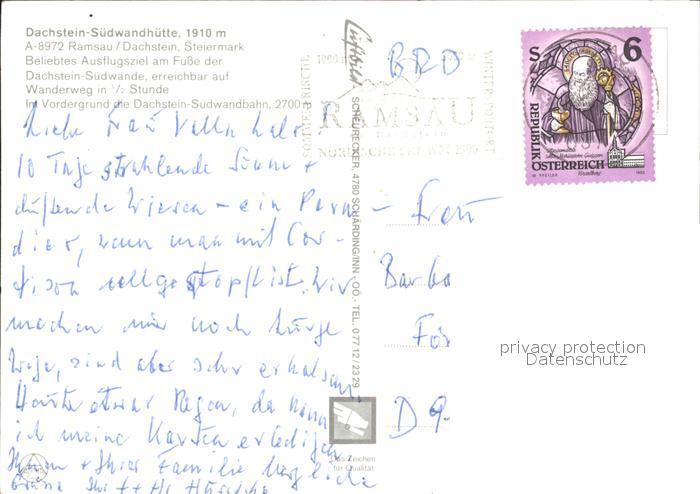 Dachstein-Südwandhütte, 1910 m
A-8972 Ramsau/Dachstein, Steiermark
Beliebtes Ausflugsziel am Fuße der
Dachstein-Südwände, erreichbar auf
Wanderweg in ½ Stunde
Im Vordergrund die Dachstein-Südwandbahn, 2700 m
Luftbild:
SCHEURECKER, 4780 SCHÄRDING/INN, OÖ. - TEL. 0 77 12 / 23 29
RAMSAU
BRD
S 6
REPUBLIK
ÖSTERREICH
Liebe Frau
10 Tage strahlende Sonne +
duftende Wiesen - ein Para-
dies, wenn man mit Cor-
tison vollgestopft ist. Wir
machen nur noch kurze
Wege, sind aber sehr erholsam
Heute etwas Regen, da kann
ich meine Karten erledigen
Ihnen + Ihrer Familie herzliche
Grüße Ihr
Frau
Barba
För
D 9-
privacy protection
Datenschutz
Das Zeichen
für Qualität